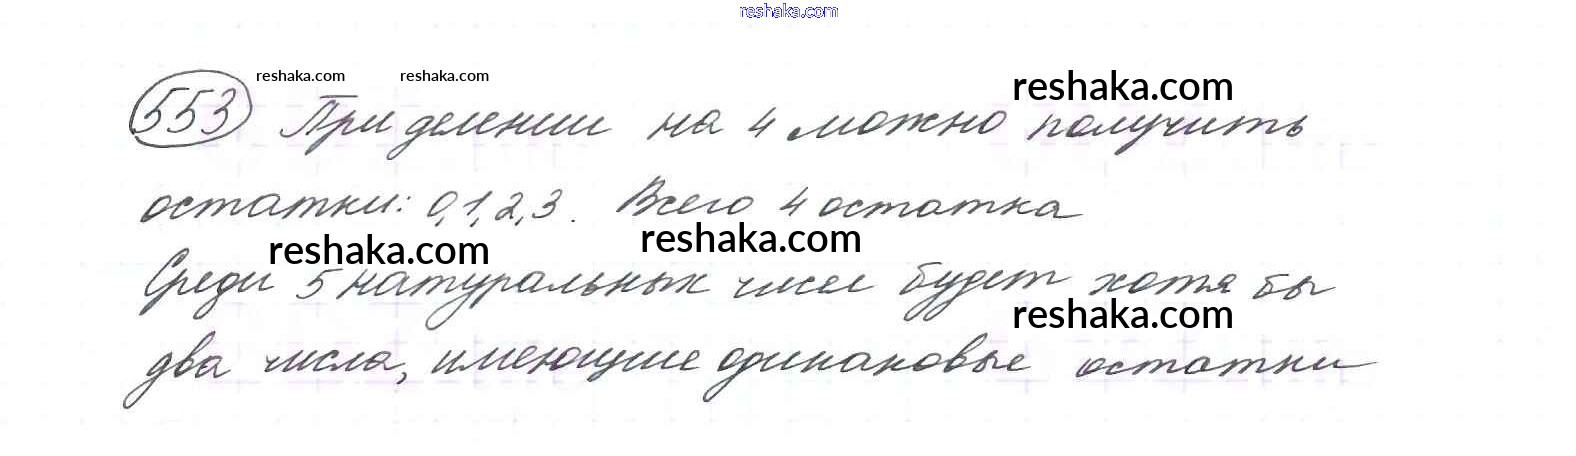 reshaka.com
reshaka.com reshaka.com reshaka.com
553 При делении на 4 можно получить
остатки: 0,1,2,3. Всего 4 остатка
reshaka.com reshaka.com
Среди 5 натуральных чисел будет хотя бы
reshaka.com
два числа, имеющие одинаковые остатки